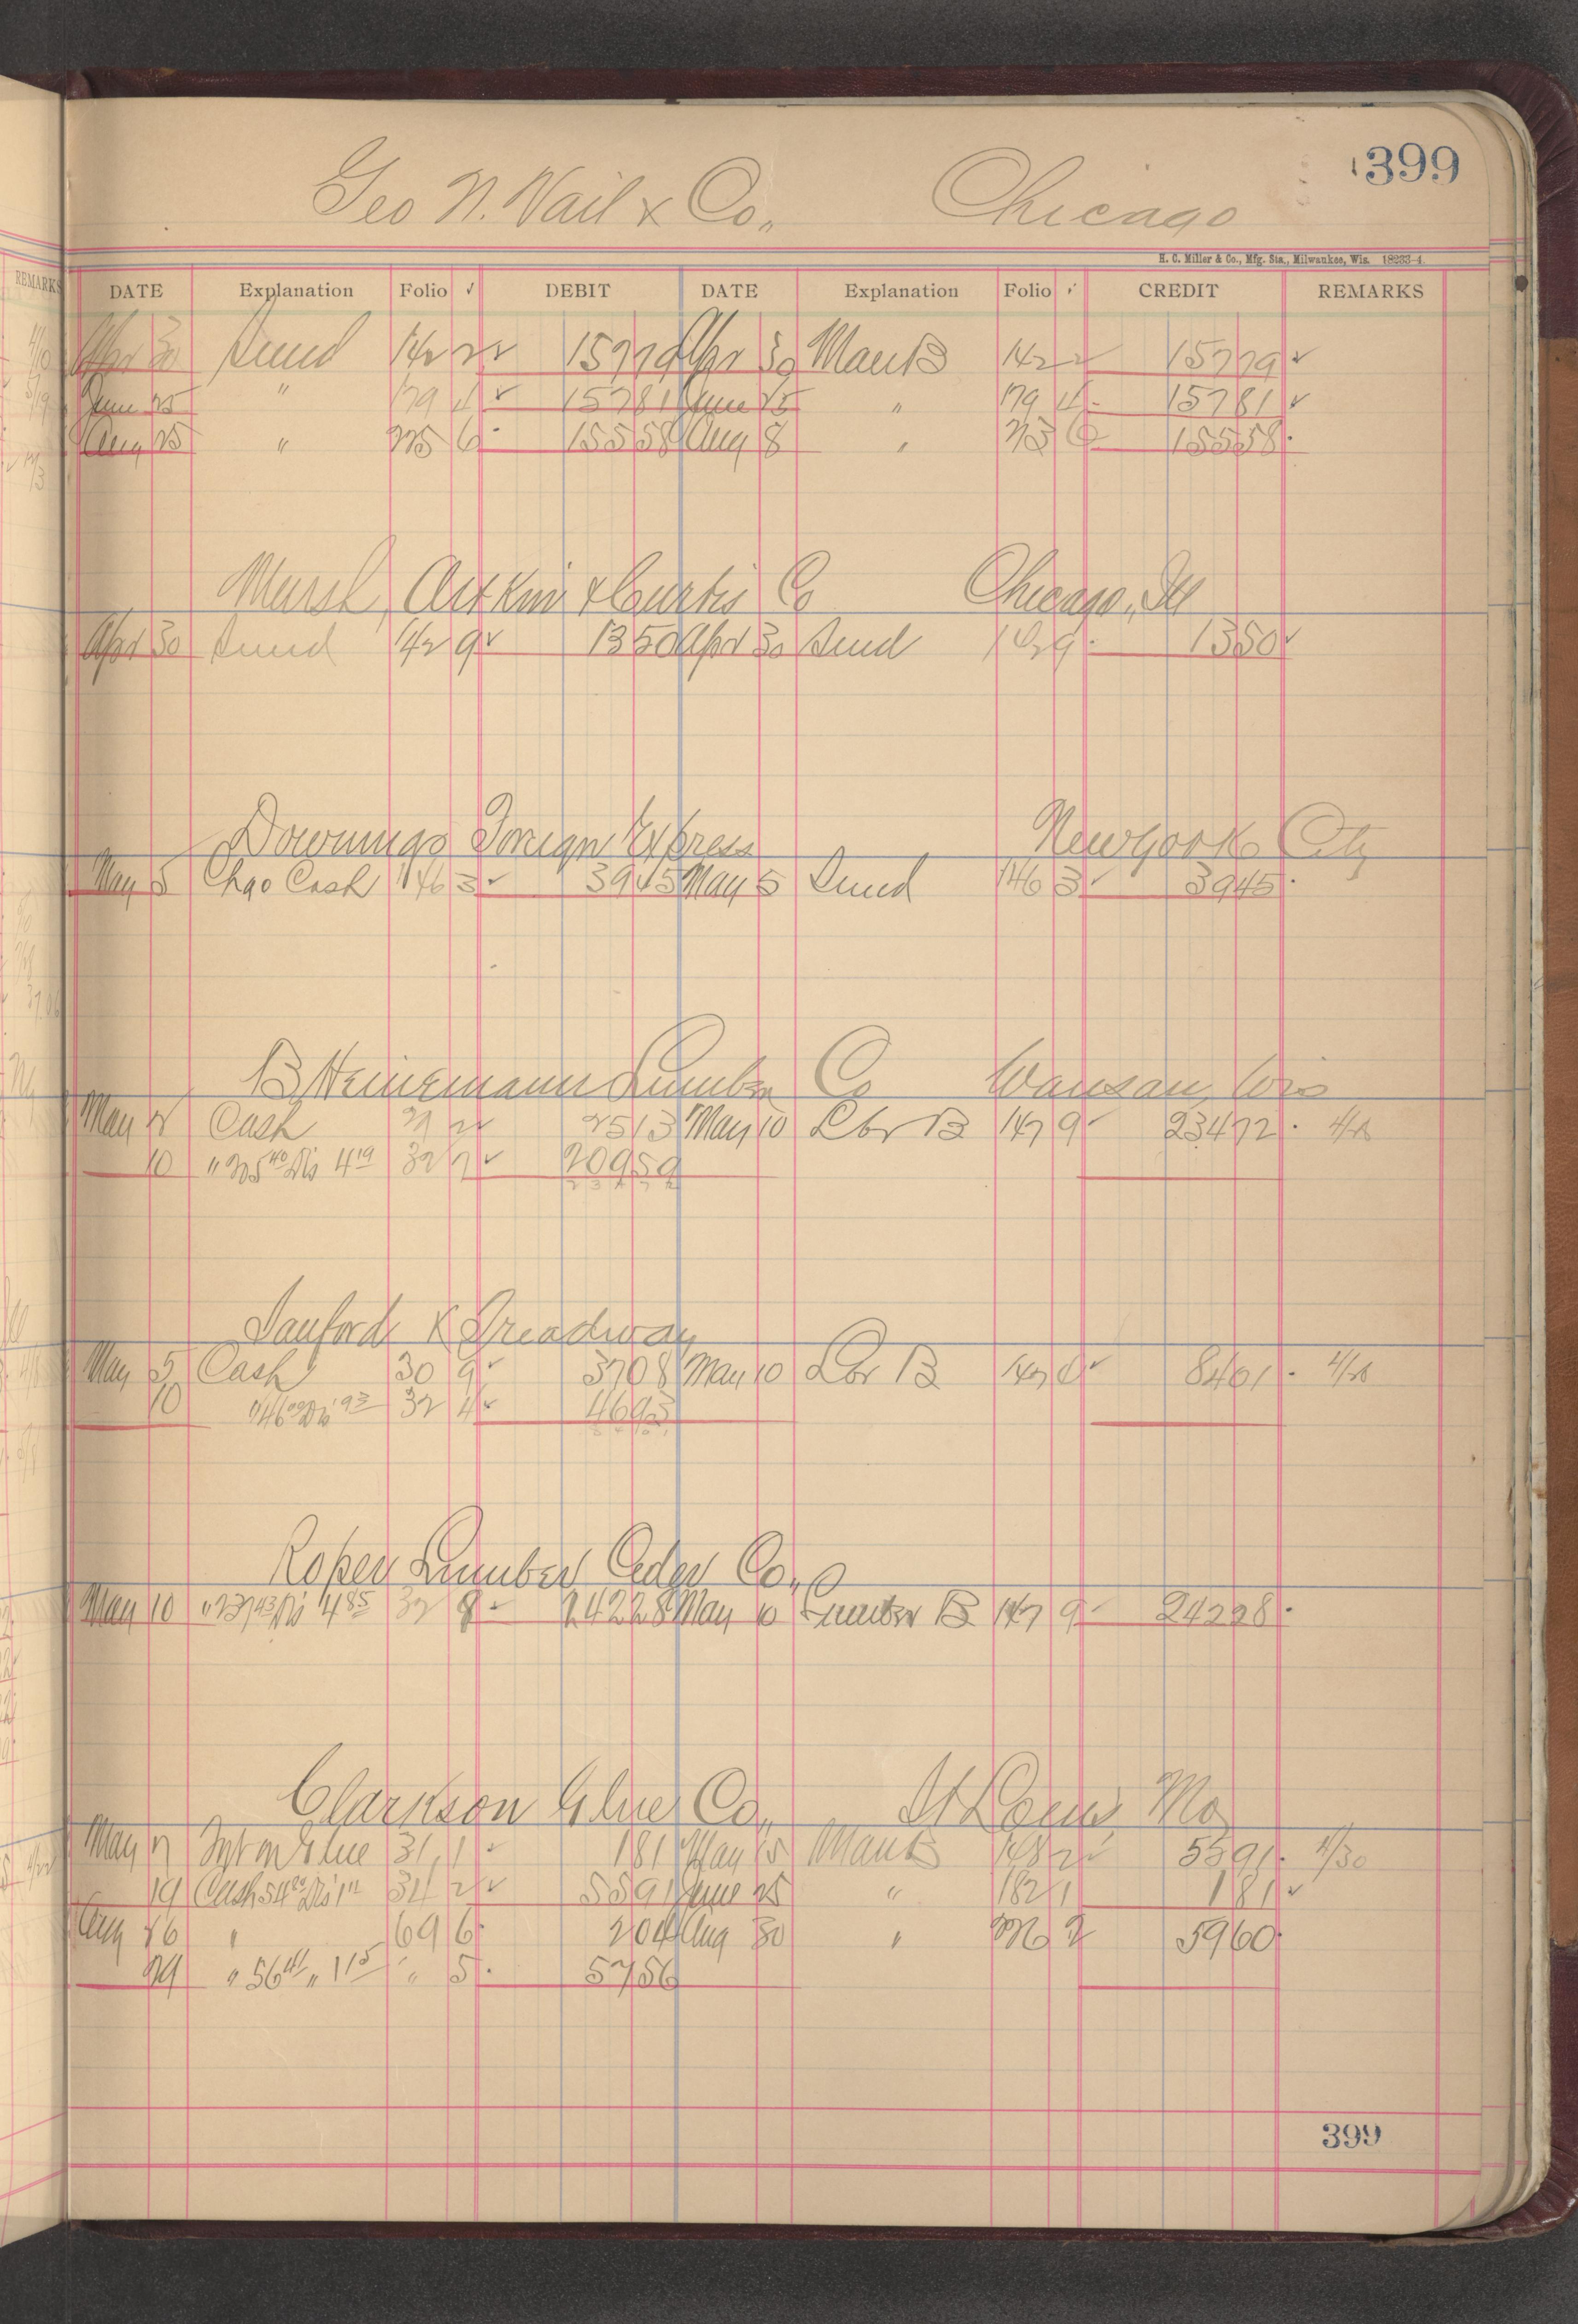 399
Geo N. Nail & Co., Chicago
H. C. Miller & Co., Mfg. Sta., Milwaukee, Wis. 18233-4
DATE Explanation Folio ✓ DEBIT DATE Explanation Folio ✓ CREDIT REMARKS
Apr 30 Sund 142 2 ✓ 157 79 Apr 30 Manf B 142 2 157 79 ✓
June 25 " 179 4 ✓ 157 81 June 25 " 179 4 157 81 ✓
Aug 25 " 6 155 58 Aug 8 " 6 155 58
Marsh, & Curtis Co Chicago, Ill
Apr 30 Sund 142 9 ✓ 13 50 Apr 30 Sund 9 13 50 ✓
Downings Foreign Express New York City
May 5 Chgo Cash 146 3 ✓ 39 45 May 5 Sund 146 3 ✓ 39 45
B Heinemann Lumber Co Wausau, Wis
May Cash 25 13 May 10 Lbr B 147 9 234 72
10 " Dis 4 19 32 ✓ 209 59
Sanford K Treadway
May 5 Cash 30 9 ✓ 37 08 May 10 Lbr B 147 84 01
10 " 46 Dis 93 32 4 ✓ 46 93
Roper Lumber Cedar Co.,
May 10 " 237 43 Dis 4 85 32 8 242 28 May 10 Lumber B 147 9 242 28
Clarkson Glue Co., St Louis, Mo
May Frt on Glue 31 1 ✓ 1 81 May 15 Manf B 148 2 ✓ 55 91 4/30
19 Cash 54 Dis 1 34 2 ✓ 55 91 June 25 " 182 1 1 81 ✓
Aug 26 " 69 6 2 04 Aug 30 " 2 59 60
29 " 56 41 " 1 15 " 5 57 56
399